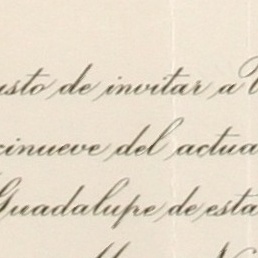 usto de invitar a
cinueve del actua
Guadalupe de esta